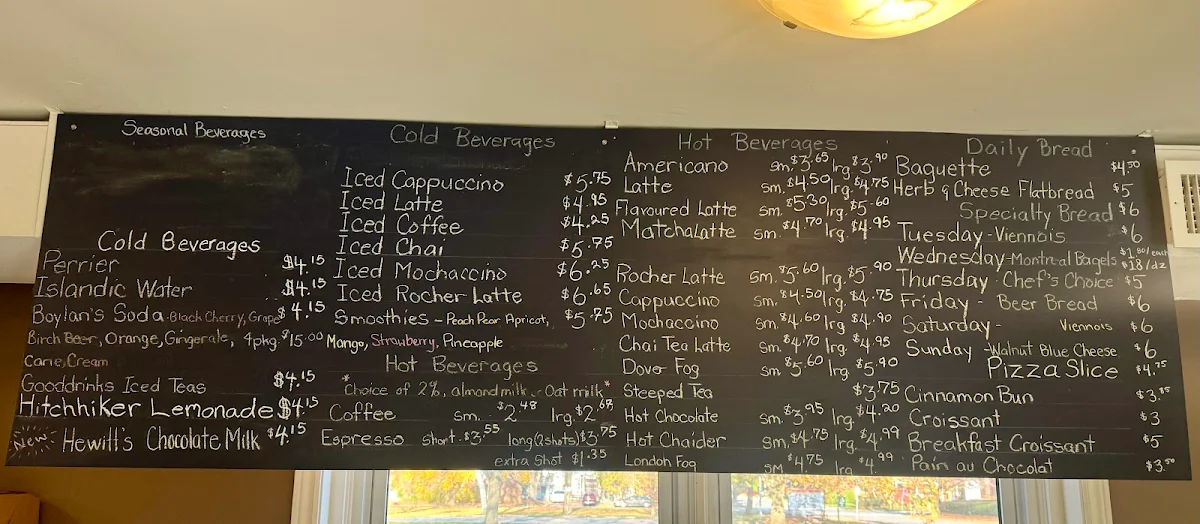 Seasonal Beverages
Cold Beverages
Perrier $4.15
Islandic Water $4.15
Boylan's Soda - Black Cherry, Grape $4.15
Birch Beer, Orange, Gingerale, 4pkg $15.00
Cane, Cream
Gooddrinks Iced Teas $4.15
Hitchhiker Lemonade $4.15
New! Hewitt's Chocolate Milk $4.15
Cold Beverages
Iced Cappuccino $5.75
Iced Latte $4.95
Iced Coffee $4.25
Iced Chai $5.75
Iced Mochaccino $6.25
Iced Rocher Latte $6.65
Smoothies - Peach Pear Apricot, $5.75
Mango, Strawberry, Pineapple
Hot Beverages
*Choice of 2%, almond milk - Oat milk*
Coffee sm. $2.48 lrg. $2.68
Espresso short - $3.55 long (2 shots) $3.75
extra shot $1.35
Hot Beverages
Americano sm. $3.65 lrg. $3.90
Latte sm. $4.50 lrg. $4.75
Flavoured Latte sm. $5.30 lrg. $5.60
Matcha Latte sm. $4.70 lrg. $4.95
Rocher Latte sm. $5.60 lrg. $5.90
Cappuccino sm. $4.50 lrg. $4.75
Mochaccino sm. $4.60 lrg. $4.90
Chai Tea Latte sm. $4.70 lrg. $4.95
Dover Fog sm $5.60 lrg $5.90
Steeped Tea $3.75
Hot Chocolate sm. $3.95 lrg. $4.20
Hot Chaider sm. $4.75 lrg. $4.99
London Fog sm $4.75 lrg $4.99
Daily Bread
Baguette $4.50
Herb & Cheese Flatbread $5
Specialty Bread $6
Tuesday - Viennois $6
Wednesday - Montreal Bagels $1.80/each
$18/dz
Thursday - Chef's Choice $5
Friday - Beer Bread $6
Saturday - Viennois $6
Sunday - Walnut Blue Cheese $6
Pizza Slice $4.75
Cinnamon Bun $3.85
Croissant $3
Breakfast Croissant $5
Pain au Chocolat $3.50